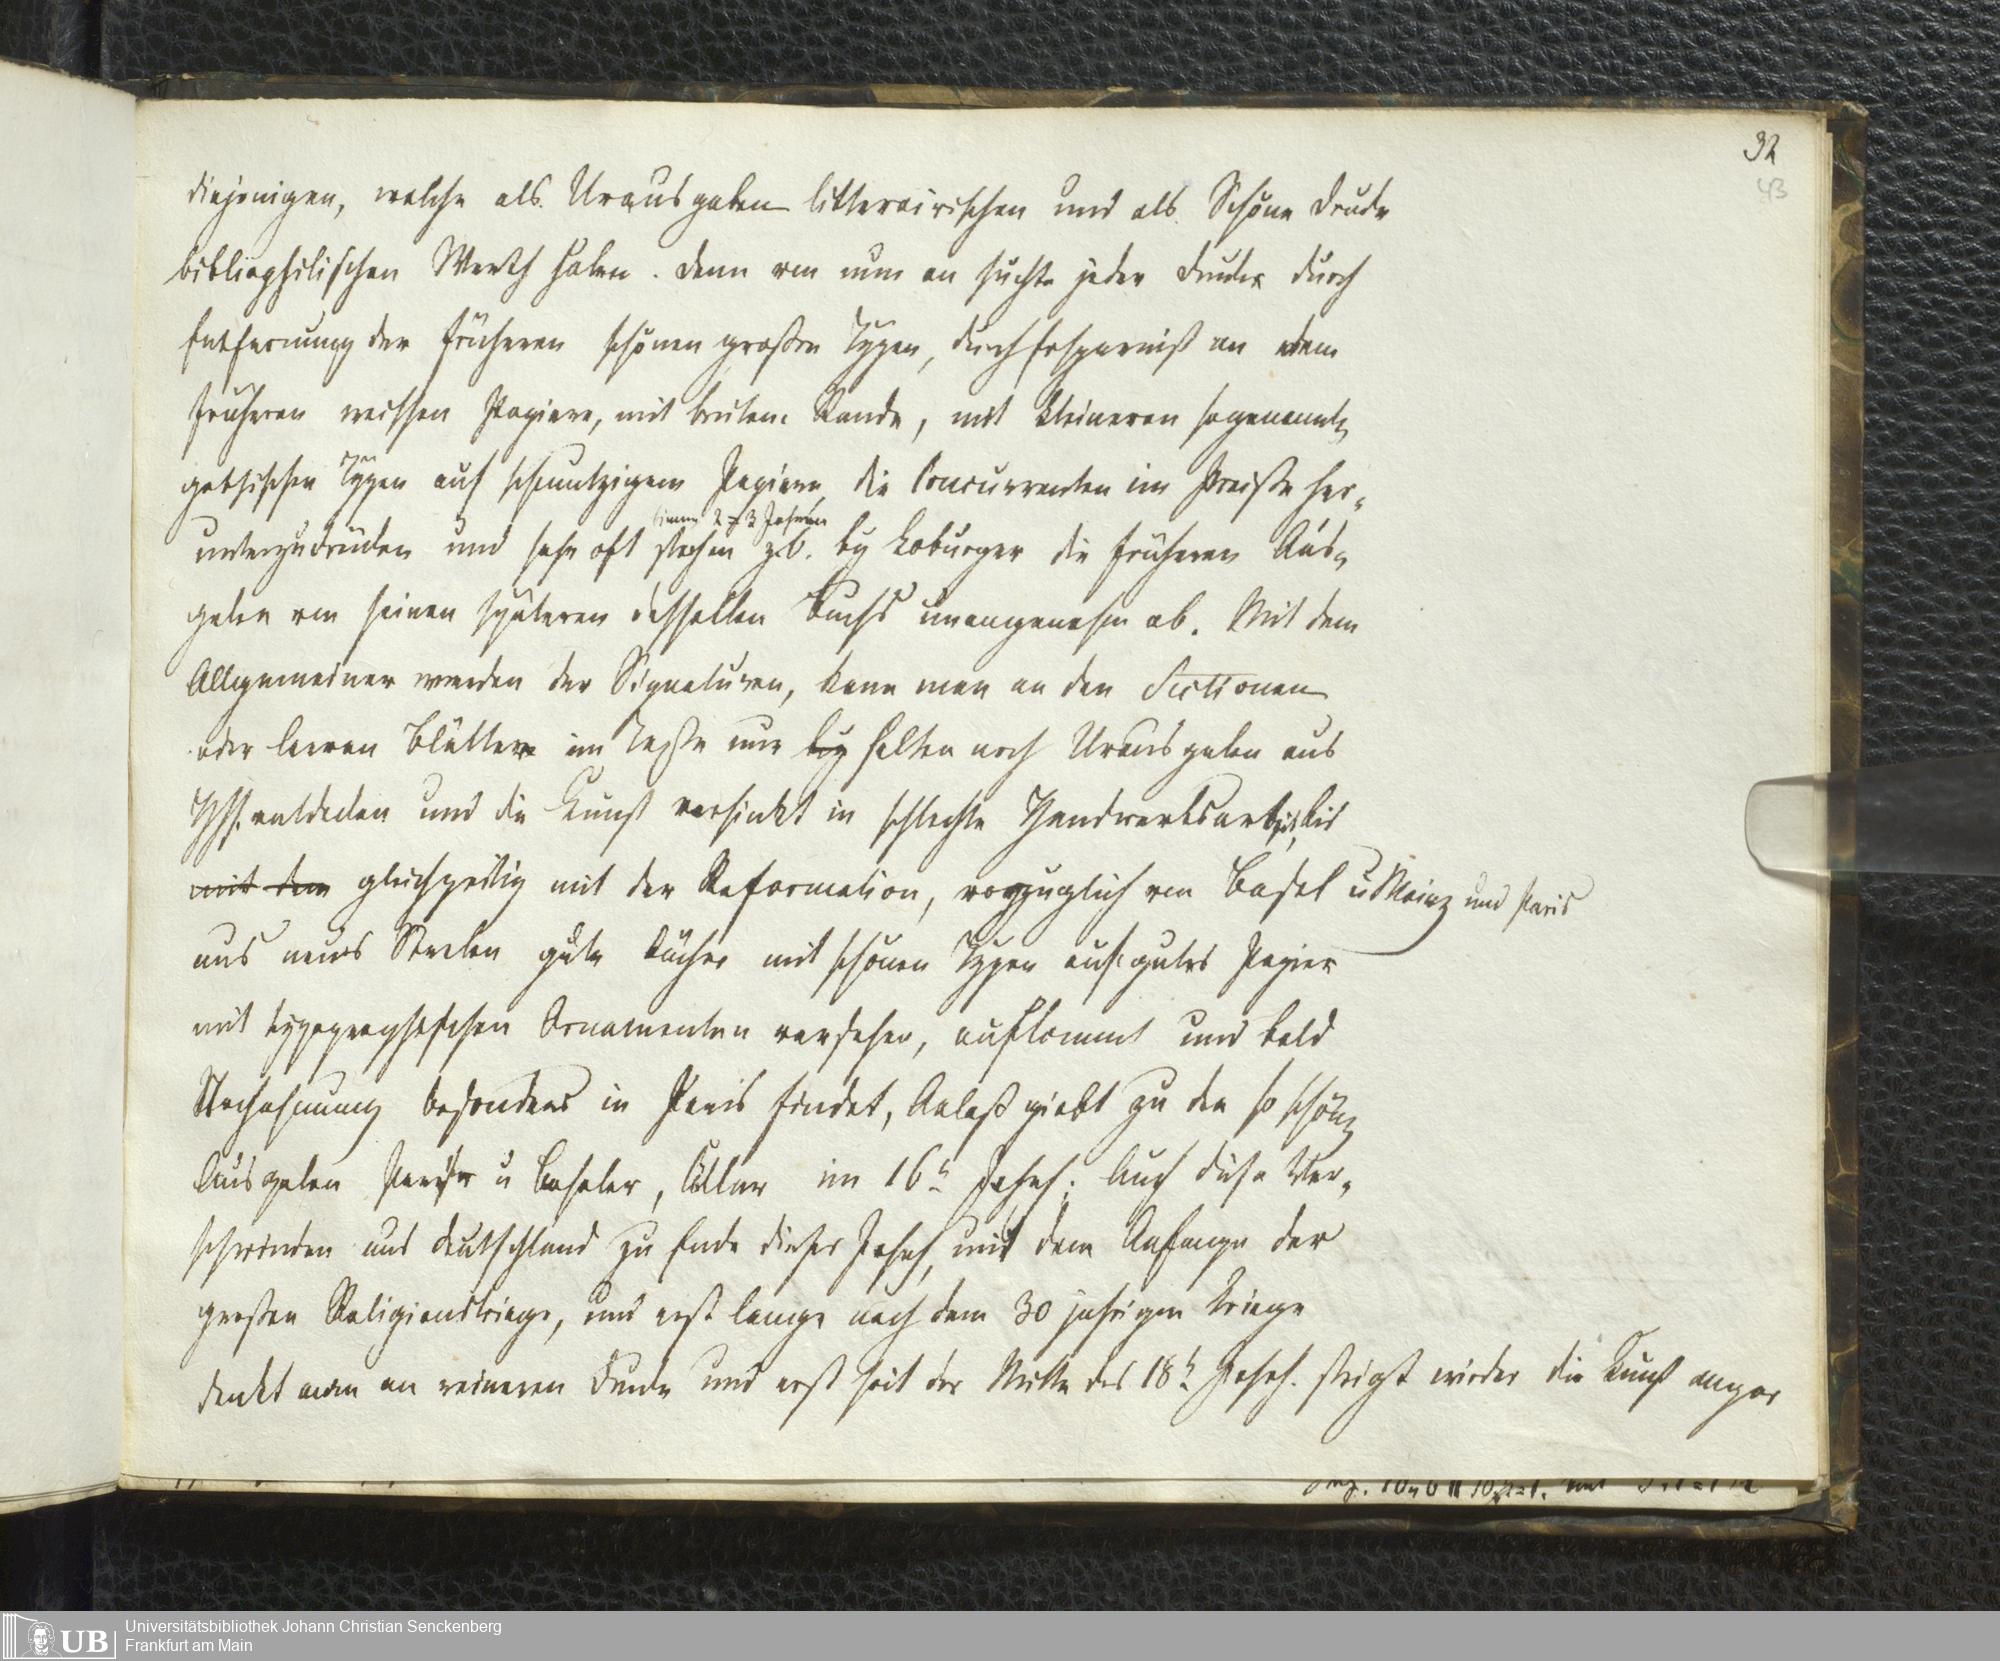 32
43
diejenigen, welche als Urausgaben litterairischen und als Schöne Drucke
bibliophilischen Werth haben. Denn von nun an suchte jeder Drucker durch
Entfernung der früheren schönen großen Typen, durch Ersparniß an dem
früheren weissen Papiere, mit breitem Rande, mit kleineren sogenannten
gothischen Typen auf schmutzigem Papiere, die Concurrenten im Preise her-
binnen 2-3 Jahren
unterzudrücken und sehr oft stechen z.b. by Koburger die früheren Aus-
gaben von seinen späteren desselben Buchs unangenehm ab. Mit dem
Allgemeiner werden der Signaturen, kann man an den
oder leeren Blättern im Texte nur by selten noch Urausgaben aus
Hss. entdecken und die Kunst versinkt in schlechte Handwerksarbeit, bis
mit dem gleichzeitig mit der Reformation, vorzuglich von Basel u Mainz und Paris
aus neues Streben gute Bücher mit schönen Typen auf gutes Papier
mit typographischen Ornamenten versehen, aufkommt und bald
Nachahmung besonders in Paris findet, Anlaß giebt zu den so schönen
Ausgaben Pariser u Baseler, Cöllner im 16n Jahrh; Auch diese Ver-
schwinden aus Deutschland zu Ende dieses Jahrh, mit dem Anfange der
großen Religionskriege, und erst lange nach dem 30 jahrigen Kriege
denkt man an reineren Drucke und erst seit der Mitte des 18n Jahrh. steigt wieder die Kunst empor
Universitätsbibliothek Johann Christian Senckenberg
Frankfurt am Main
UB